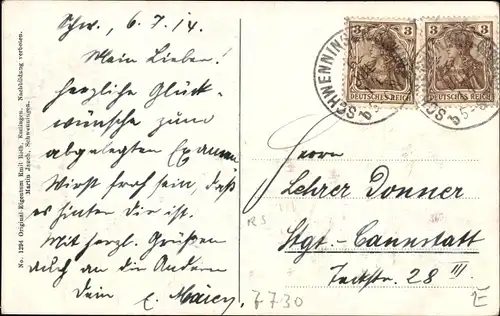 Schw., 6.7.14.
Mein Lieber!
herzliche Glück-
wünsche zum
abgelegten Examen
Wirst froh sein, daß
es hinter dir ist.
Mit herzl. Grüßen
auch an die Anderen
Dein E.
No. 1294 Original-Eigentum Emil Roth, Esslingen. Nachbildung verboten.
Martin Jauch, Schwenningen.
3 3
DEUTSCHES REICH
3 3
DEUTSCHES REICH
SCHWENNINGEN
Herrn
Lehrer Donner
Stgt.-Cannstatt
Teckstr. 28 III.
7730